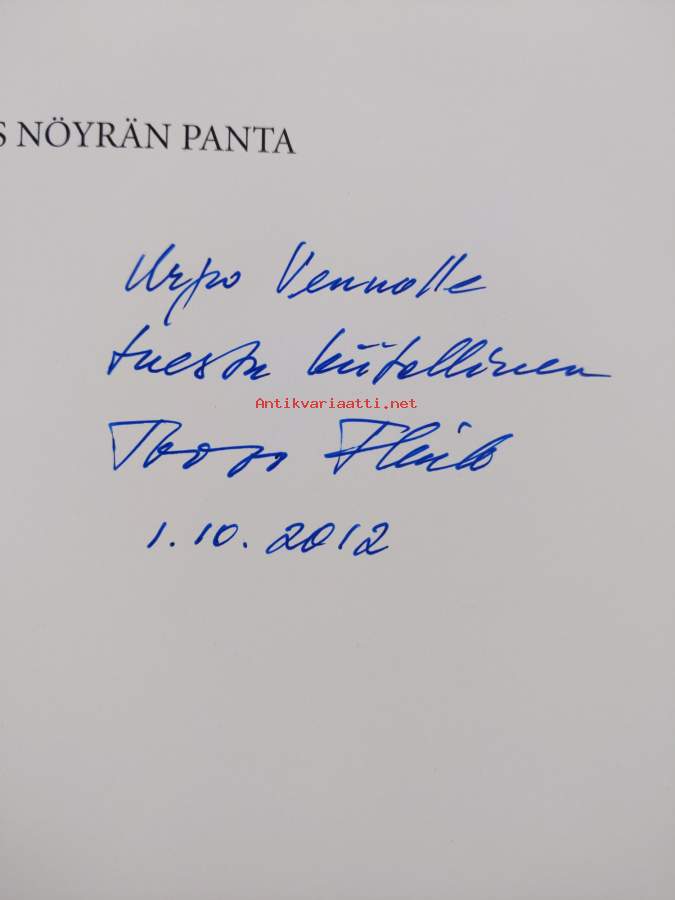 S NÖYRÄN PANTA
Urpo Vennolle
tuesta kiitollinen
Antikvariaatti.net
1.10.2012